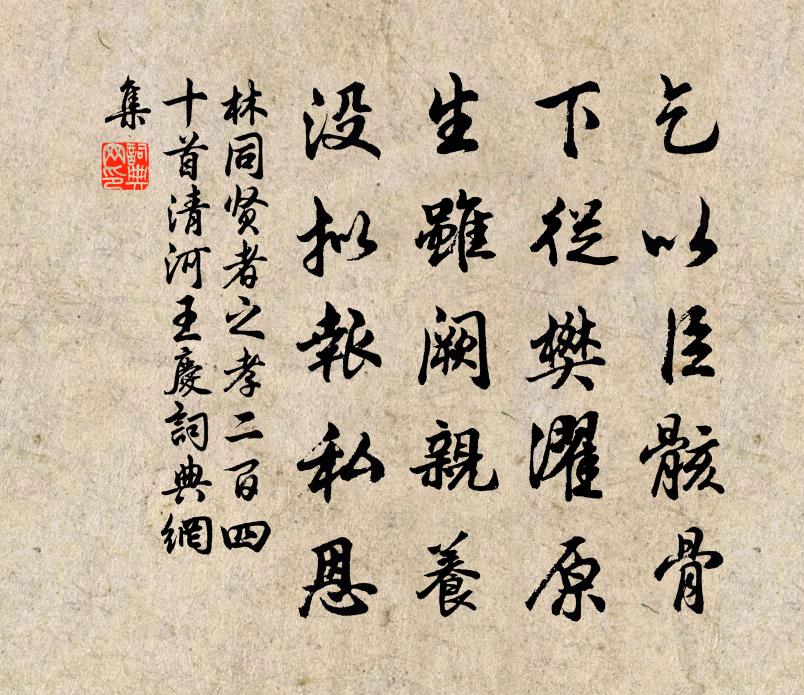 乞以臣骸骨
下從樊濯原
生雖阙親養
没拟報私恩
林同贤者之孝二百四
十首清河王慶詞典網
集
詞典
网印